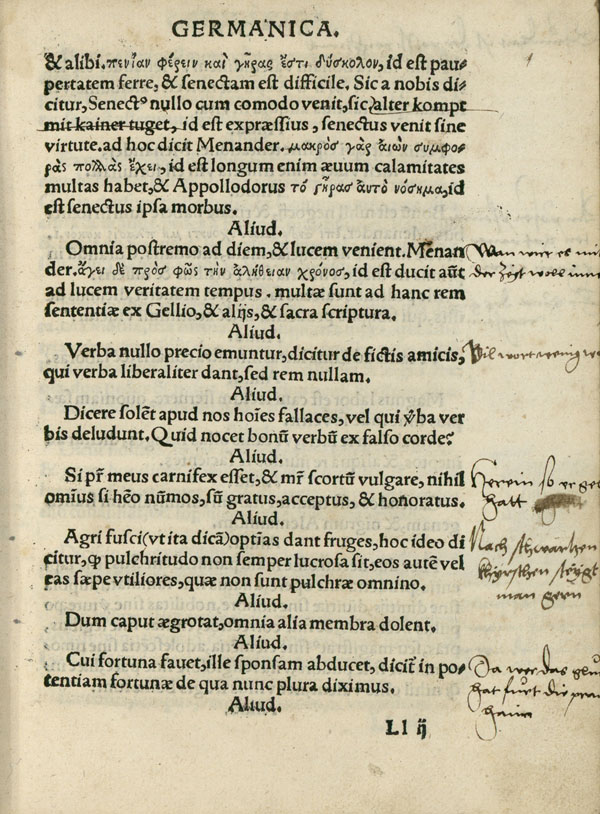 GERMANICA.
& alibi. πενίαν φέρειν καὶ γῆρας ἔστι δύσκολον, id est pau-
pertatem ferre, & senectam est difficile. Sic a nobis di-
citur, Senectꝰ nullo cum comodo venit, sic, alter kompt
mit kainer tuget, id est expræssius, senectus venit sine
virtute. ad hoc dicit Menander. μακρὸσ γὰρ αἰών συμφο-
ρὰς πολλὰς ἔχει, id est longum enim æuum calamitates
multas habet, & Appollodorus τό γῆρασ ἀυτὸ νόσημα, id
est senectus ipsa morbus.
Aliud.
Omnia postremo ad diem, & lucem venient. Menan
der. ἄγει δὲ πρὸσ φῶς τὴν ἀλήθειαν χρόνοσ, id est ducit aūt
ad lucem veritatem tempus. multæ sunt ad hanc rem
sententiæ ex Gellio, & alijs, & sacra scriptura.
Aliud.
Verba nullo precio emuntur, dicitur de fictis amicis,
qui verba liberaliter dant, sed rem nullam.
Aliud.
Dicere solēt apud nos hoīes fallaces, vel qui ṽba ver
bis deludunt. Quid nocet bonū verbū ex falso corde?
Aliud.
Si pr̄ meus carnifex esset, & mr̄ scortū vulgare, nihil
omīus si hēo nūmos, sū gratus, acceptus, & honoratus.
Aliud.
Agri fusci (vt ita dicā) optīas dant fruges, hoc ideo di
citur, ꝙ pulchritudo non semper lucrosa sit, eos autē vel
cas sæpe vtiliores, quæ non sunt pulchræ omnino.
Aliud.
Dum caput ægrotat, omnia alia membra dolent.
Aliud.
Cui fortuna fauet, ille sponsam abducet, dicit̄ in po-
tentiam fortunæ de qua nunc plura diximus.
Aliud.
Ll ij
Vil wort wenig
hatt
Nach schwartzen
khyrschen steygt
man gern
Da wer das
hat furt die
haim